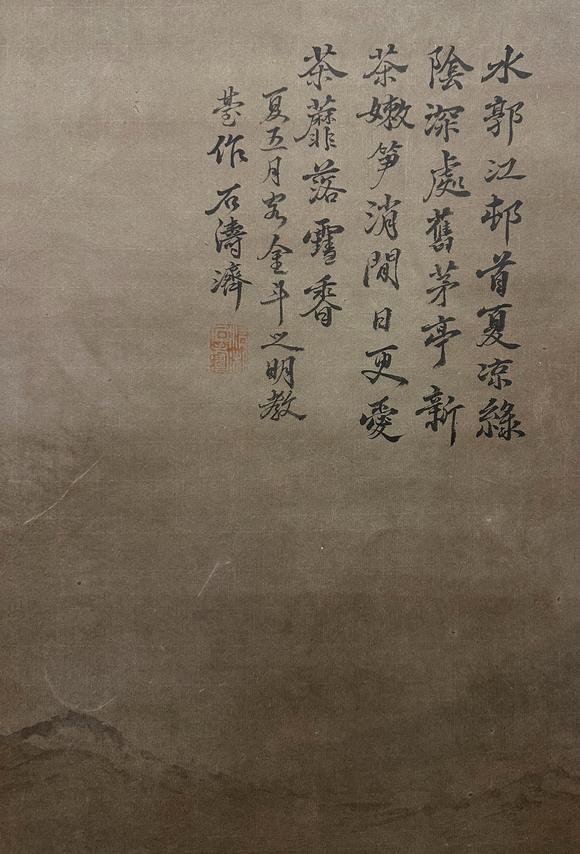 水郭江邨首夏凉綠
陰深處舊茅亭新
茶嫩笋消閒日更愛
荼蘼落雪香
夏五月客金斗之明教
臺作 石濤濟